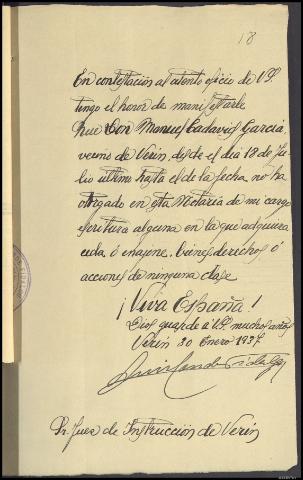 18
En contestación al atento oficio de VS.
tengo el honor de manifestarle
Que Don Manuel Cadavid García,
vecino de Verín, desde el dia 18 de Ju-
lio ultimo hasta el de la fecha no ha
otorgado en esta Notaria de mi cargo
escritura alguna en la que adquiera
ceda ó enajene, bienes derechos ó
acciones de ninguna clase
¡Viva España!
Dios guarde á VS. muchos años
Verín 30 Enero 1937.
Sr. Juez de Instrucción de Verín